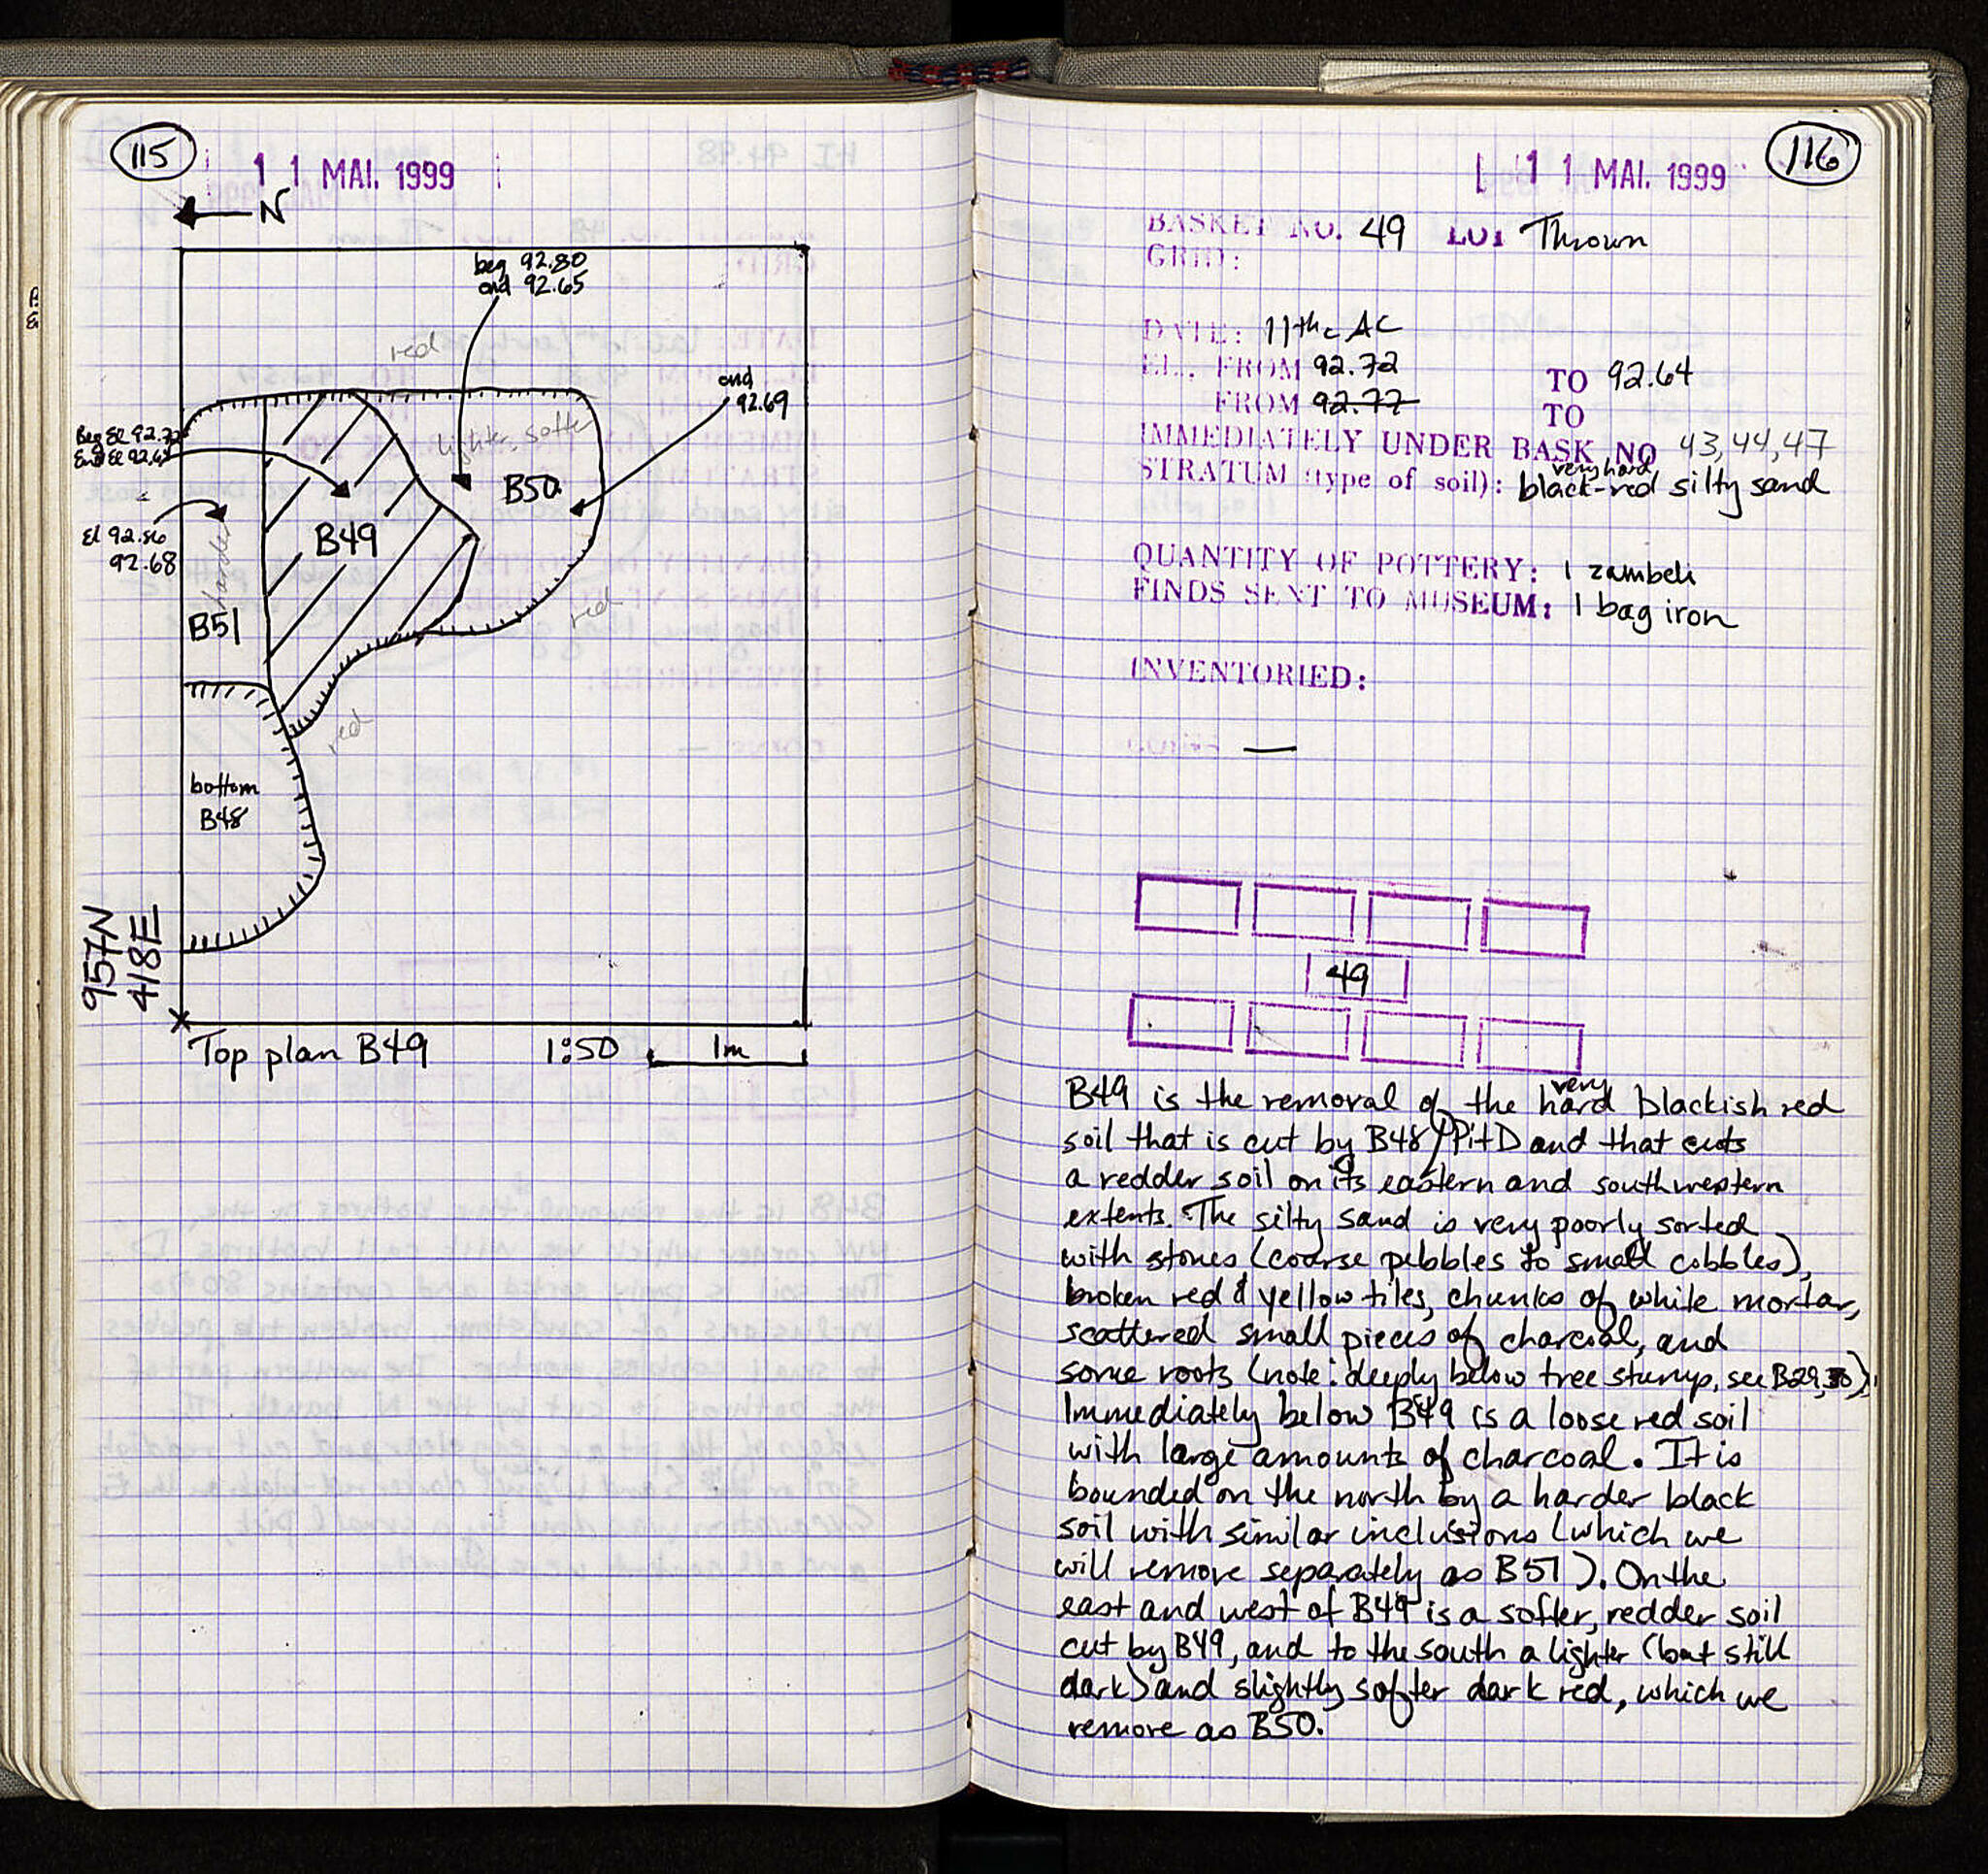 115
1 1 MAI. 1999
N
beg 92.80
end 92.65
red
end
92.69
Beg El 92.72
End El 92.64
lighter, softer
B50
B49
El 92.86
92.68
harder
B51
red
red
bottom
B48
957N
418E
Top plan B49 1:50 1m
116
1 1 MAI. 1999
BASKET NO. 49 LOT Thrown
GRID:
DATE: 11th c AC
EL. FROM 92.72 TO 92.64
FROM 92.77 TO
IMMEDIATELY UNDER BASK NO 43, 44, 47
very hard
STRATUM (type of soil): black-red silty sand
QUANTITY OF POTTERY: 1 zambeli
FINDS SENT TO MUSEUM: 1 bag iron
INVENTORIED:
COINS: —
49
very
B49 is the removal of the hard blackish red
soil that is cut by B48/Pit D and that cuts
a redder soil on its eastern and southwestern
extents. The silty sand is very poorly sorted
with stones (coarse pebbles to small cobbles),
broken red & yellow tiles, chunks of white mortar,
scattered small pieces of charcoal, and
some roots (note: deeply below tree stump, see B29, 30).
Immediately below B49 is a loose red soil
with large amounts of charcoal. It is
bounded on the north by a harder black
soil with similar inclusions (which we
will remove separately as B51). On the
east and west of B49 is a softer, redder soil
cut by B49, and to the south a lighter (but still
dark) and slightly softer dark red, which we
remove as B50.